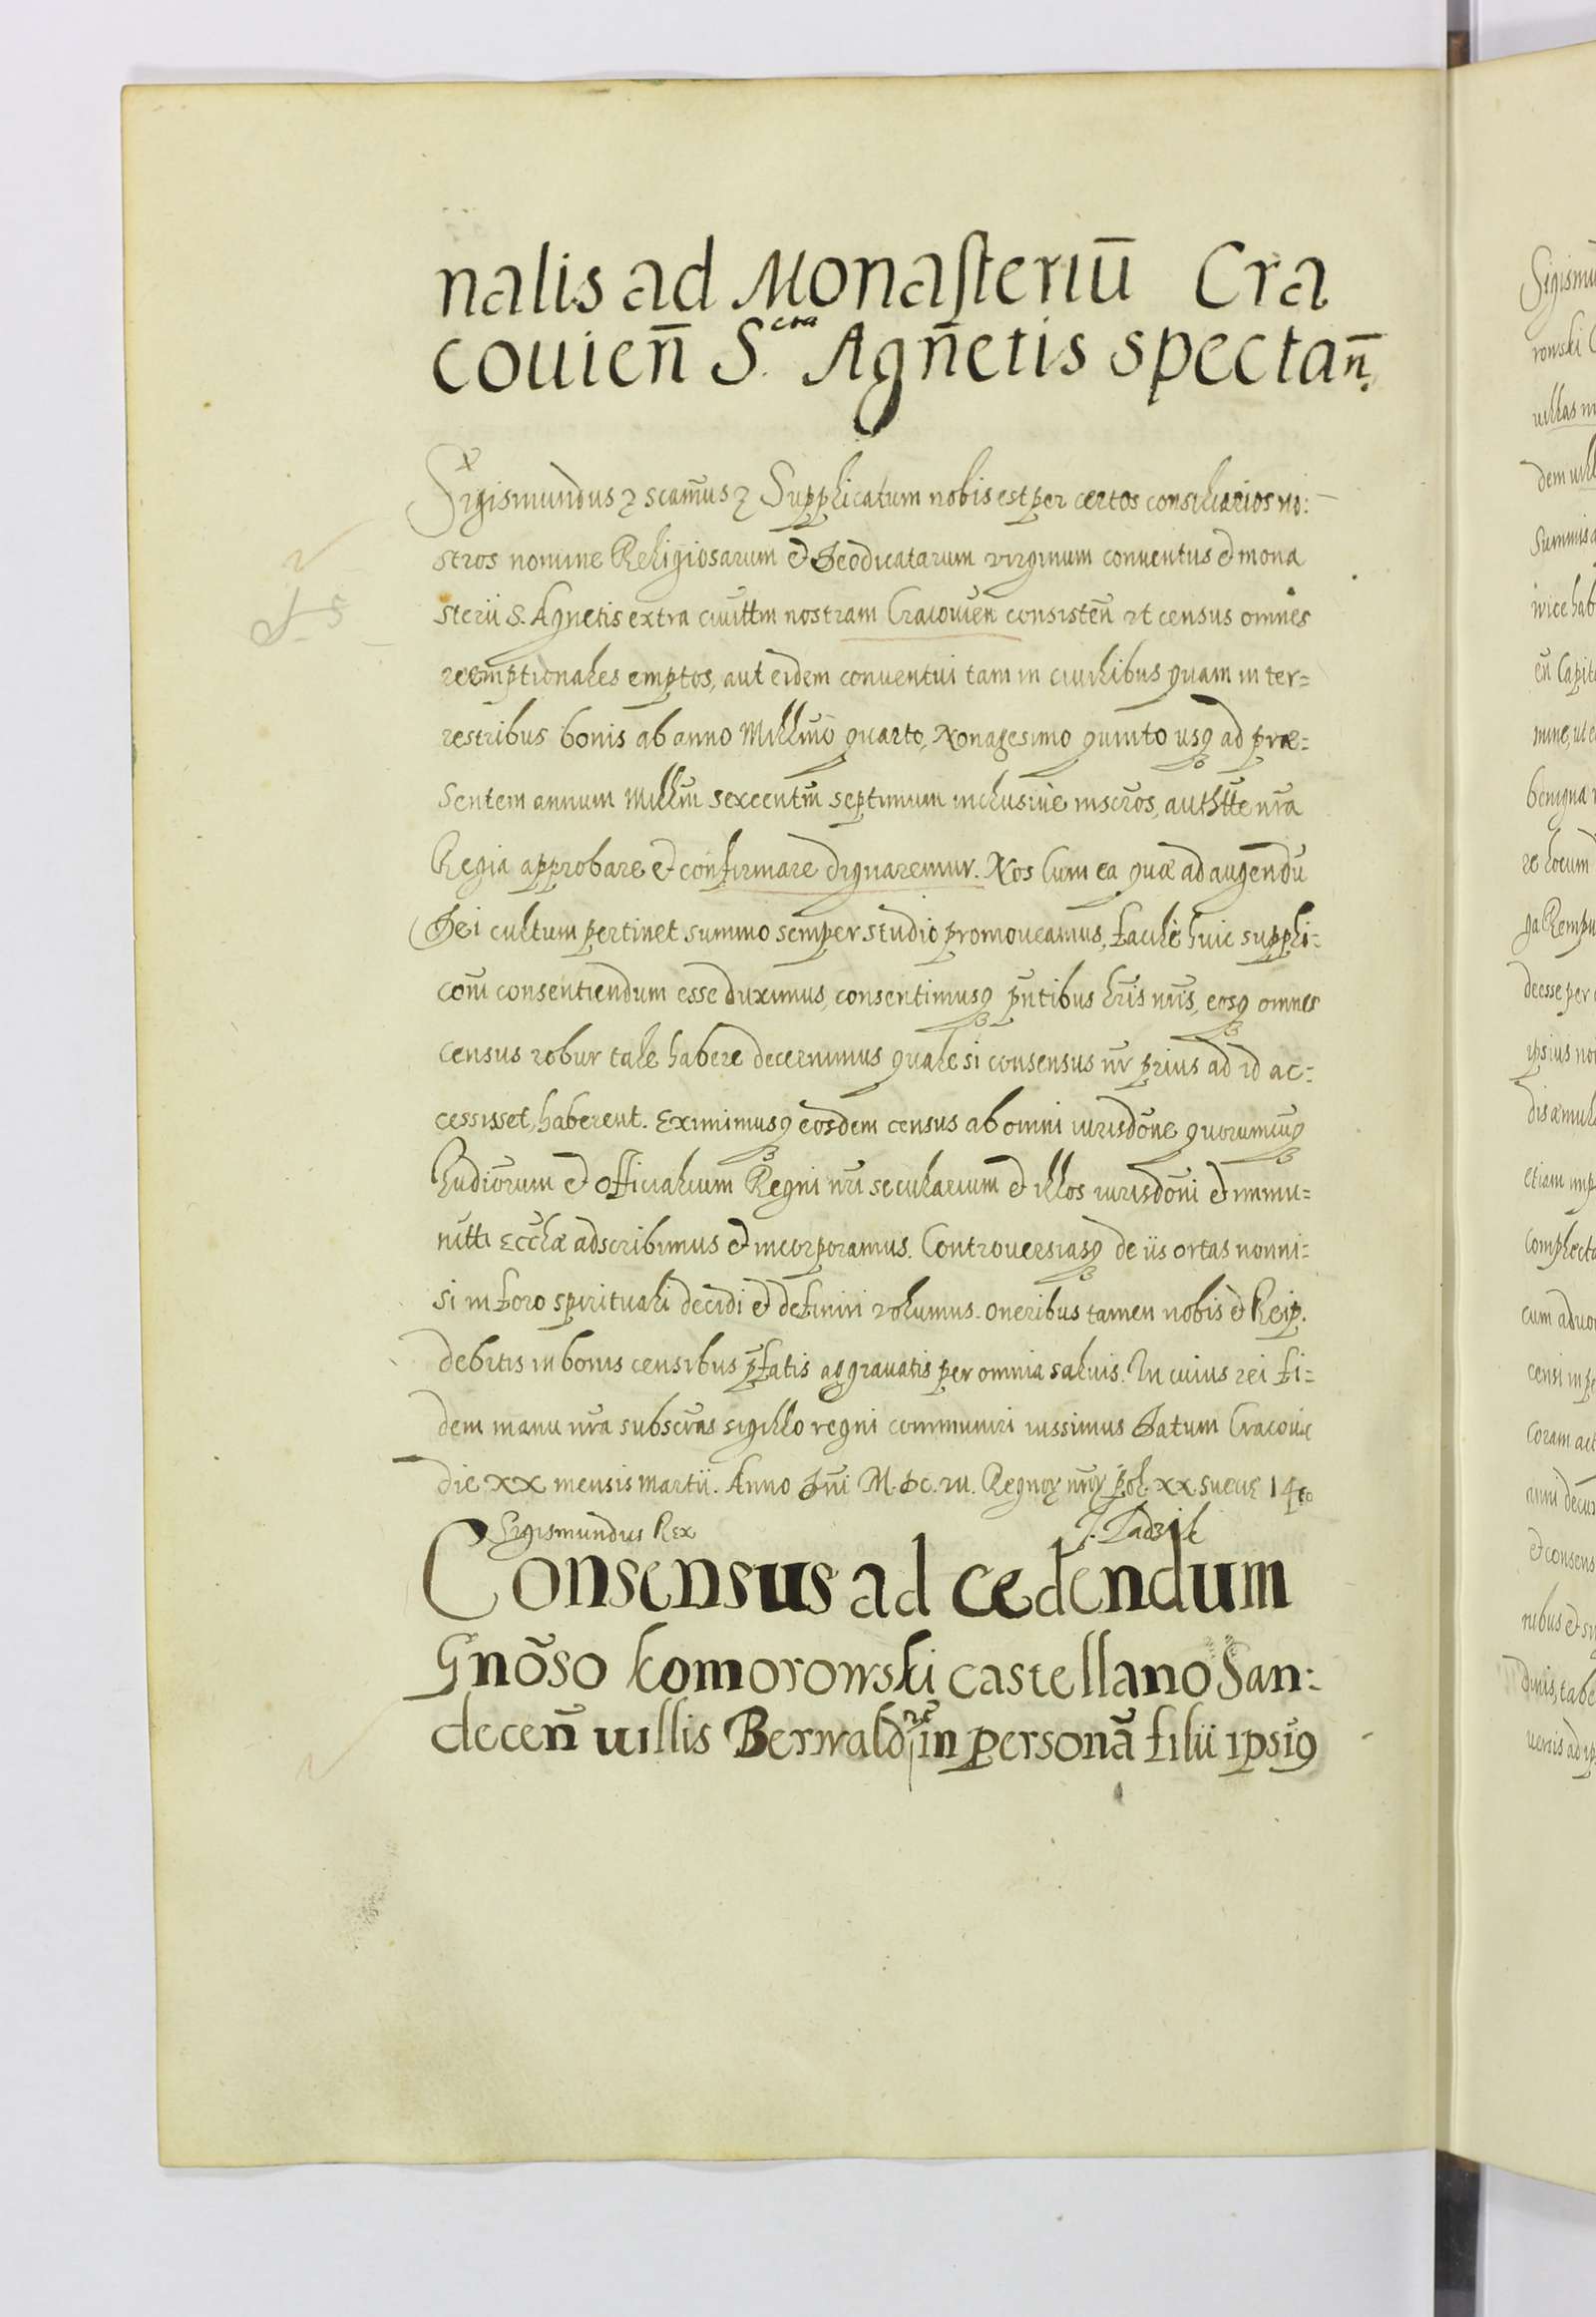 nalis ad Monasteriū Cra
couien̄ S.cta Agn̄etis spectan̄.
Sigismundus ꝛ scam̄us ꝛ Supplicatum nobis est per certos consiliarios no:
stros nomine Religiosarum et Deodicatarum virginum conuentus et mona
sterii S. Agnetis extra ciuittm nostram Cracouien̄ consisten̄ vt census omnes
reemptionales emptos, aut eidem conuentui tam in ciuilibus quam in ter=
restribus bonis ab anno Millmō quarto, Nonagesimo quinto usqꝫ ad præ=
sentem annum Millm̄ sexcentm̄ septimum inclusiue inscros, authtte nrā
Regia approbare et confirmare dignaremur. Nos Cum ea quæ ad augendū
Dei cultum pertinet summo semper studio promoueamus, facile huic suppli=
coni consentiendum esse duximus, consentimusqꝫ pn̄tibus lris nris, eosqꝫ omnes
census robur tale habere decernimus quale si consensus nr̄ prius ad id ac=
cessisset, haberent. Eximimusqꝫ eosdem census ab omni iurisdōne quorumcūqꝫ
Iudiciorum et Officialium Regni nri secularium et illos iurisdōni et immu=
nitti Eccliæ adscribimus et incorporamus. Controuersiasqꝫ de iis ortas nonni=
si in foro spirituali decidi et definiri volumus. Oneribus tamen nobis et Reip.
debitis in bonis censibus pfatis aggrauatis per omnia saluis. In cuius rei fi=
dem manu nrā subscrās sigillo regni communiri iussimus Datum Cracouiæ
die XX mensis Martii. Anno Dn̄i M.DC.VII. Regnoꝝ nrōꝝ Pol. XX. Sueciæ 14to
Sigismundus Rex
J. Zadzik
Consensus ad cedendum
Gnōso Komorowski castellano San:
decen̄ uillis Berwald in personā filii ipsiꝰ